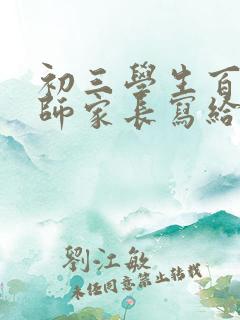 初三學生百
師家長寫給
劉江敏
未经同意禁止转载